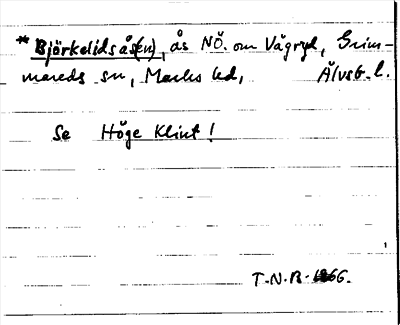 *Björkelidsås(en), ås NÖ. om Vägryd, Grim-
mareds sn, Marks hd, Älvsb. l.
Se Höge Klint!
1
T.N.B.